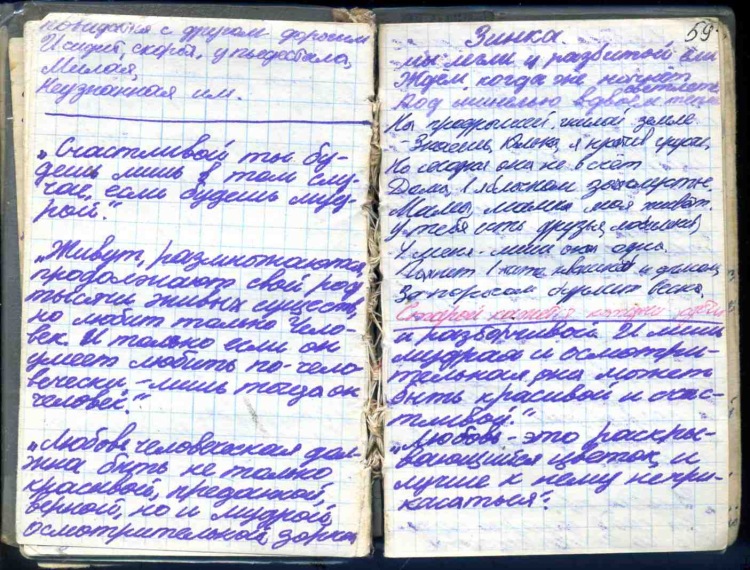 повидаться с другом дорогим
И сидит скорбя, у пьедестала,
Милая,
Неузнанная им.
„Счастливой ты бу-
дешь лишь в том слу-
чае, если будешь муд-
рой."
„Живут, размножаются,
продолжают свой род
тысячи живых существ,
но любит только чело-
век. И только если он
умеет любить по-чело-
вечески - лишь тогда он
человек."
„Любовь человеческая дол-
жна быть не только
красивой, преданной,
верной, но и мудрой,
осмотрительной, зоркой
59
Зинка.
Мы легли у разбитой ели
Ждем, когда же начнет
светлеть
Под шинелью вдвоем теплее
На продрогшей, гнилой земле
- Знаешь, Юлька, я против грусти,
Но сегодня она не в счет
Дома, в яблочном захолустье,
Мама, мамка моя живет.
У тебя есть друзья, любимый,
У меня - лишь она одна
Пахнет в хате квашней и дымом,
За порогом бурлит весна.
Старой
и разборчивой. И лишь
мудрая и осмотри-
тельная она может
быть красивой и счас-
тливой."
„Любовь - это раскры-
вающийся цветок, и
лучше к нему не при-
касаться".